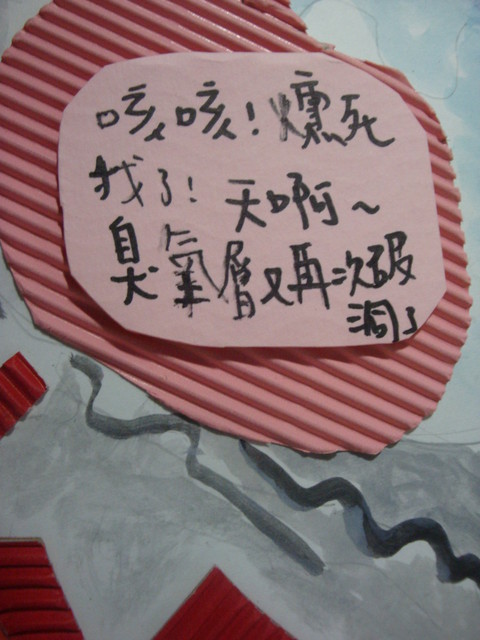 咳咳!燻死
我了! 天啊~
臭氧層又再次破
洞了